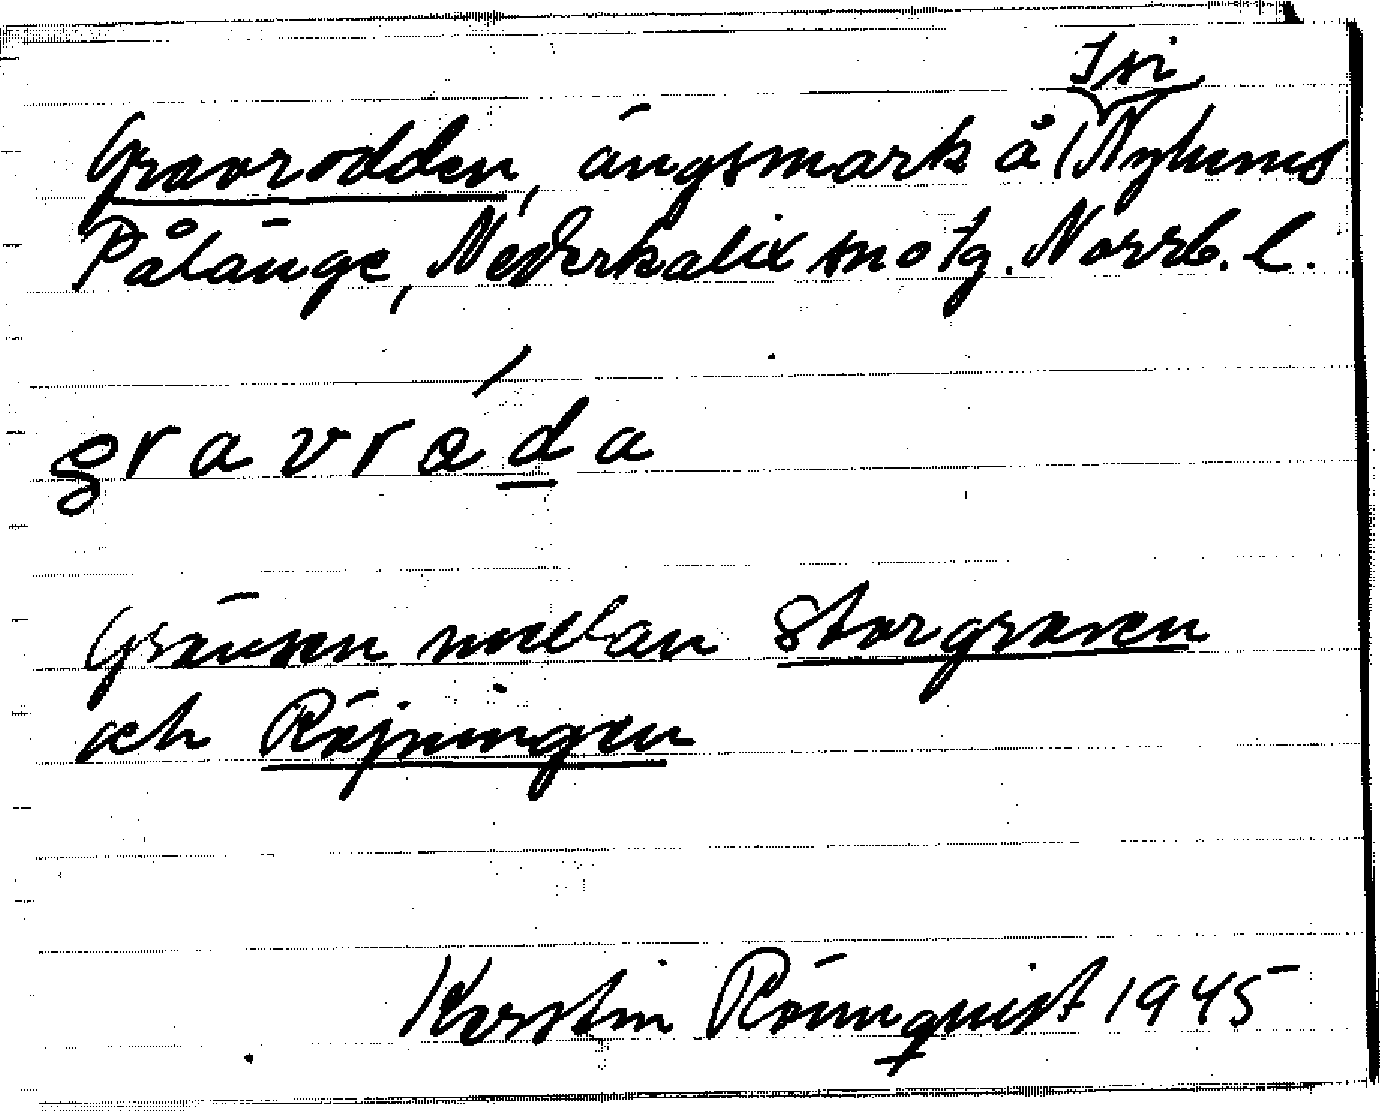 Isi
Gravrodden, ängsmark å (Nyhems
Pålänge, Nederkalix sn o tg. Norrb. l.
gravróda
Gränsen mellan Storgraven
och Röjningen
Kerstin Rönnquist 1945